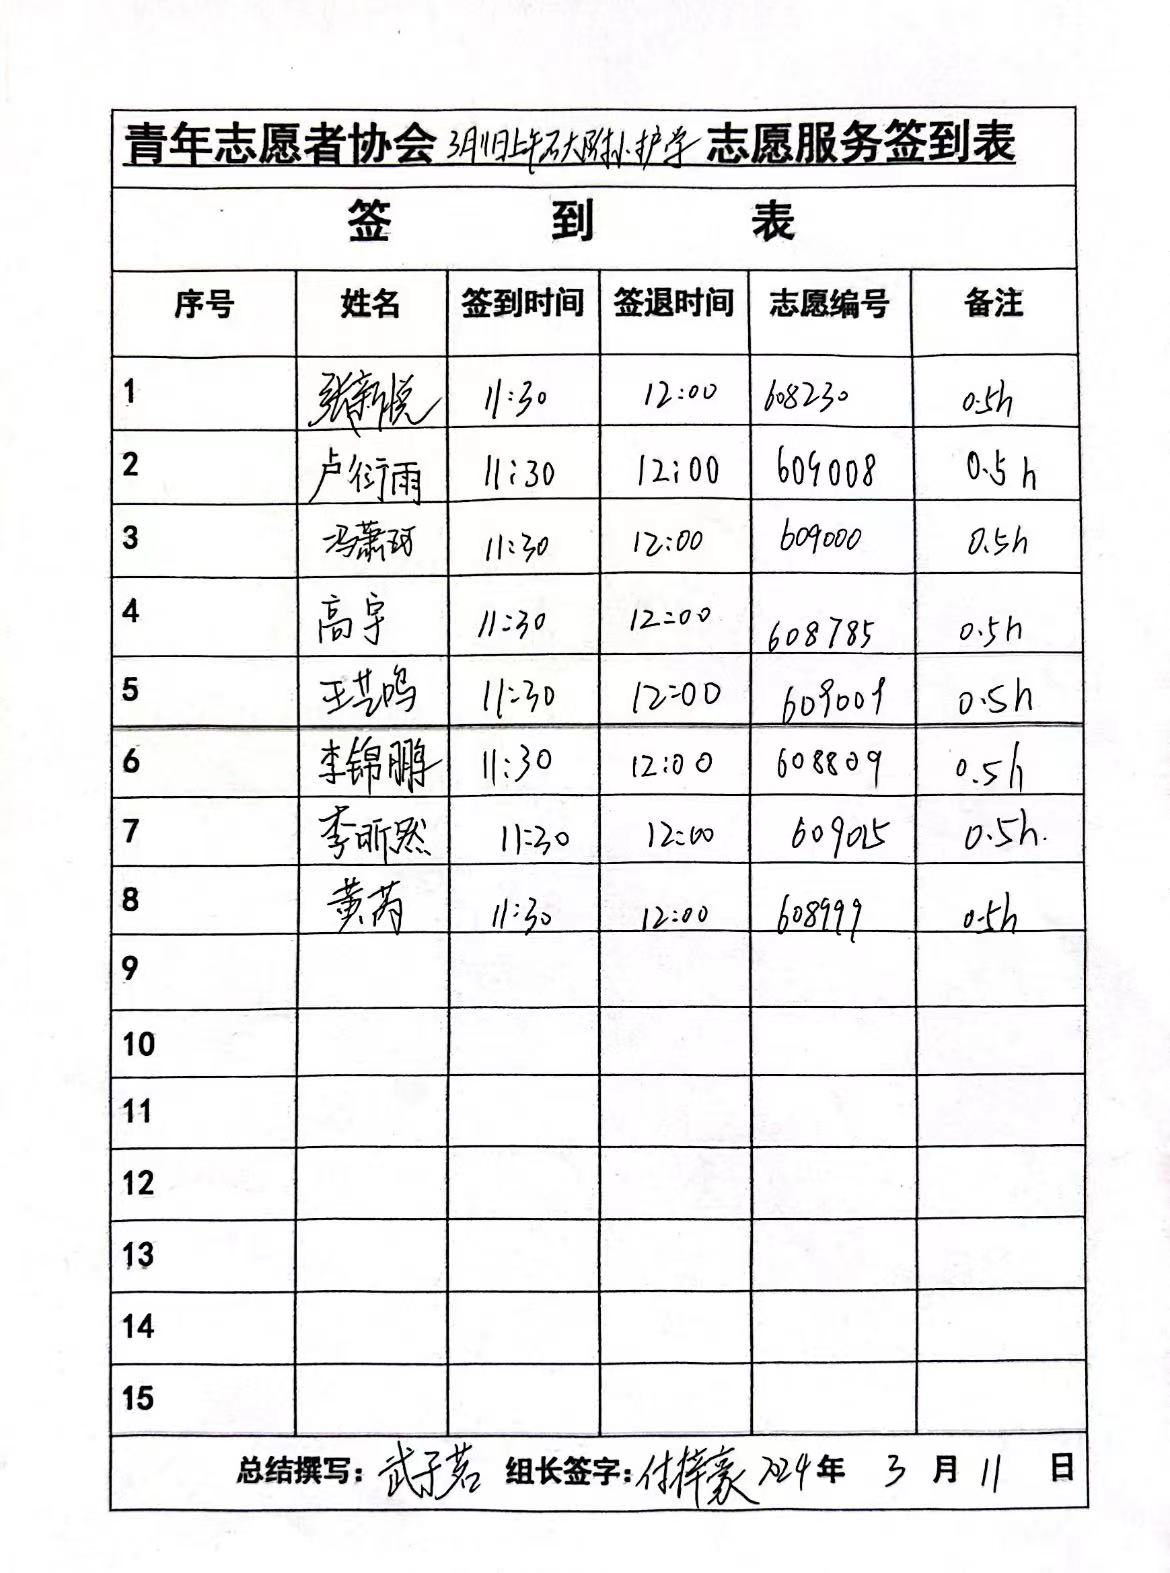 青年志愿者协会3月11日上午石大附小护学志愿服务签到表
签 到 表
序号 姓名 签到时间 签退时间 志愿编号 备注
1 张新悦 11:30 12:00 608230 0.5h
2 卢衍雨 11:30 12:00 609008 0.5h
3 冯萧珂 11:30 12:00 609000 0.5h
4 高宇 11:30 12:00 608785 0.5h
5 王芸鸣 11:30 12:00 609009 0.5h
6 李锦鹏 11:30 12:00 608809 0.5h
7 李昕然 11:30 12:00 609015 0.5h.
8 黄芮 11:30 12:00 608999 0.5h
9
10
11
12
13
14
15
总结撰写:武子茗 组长签字:付梓豪 2024年 3 月 11 日